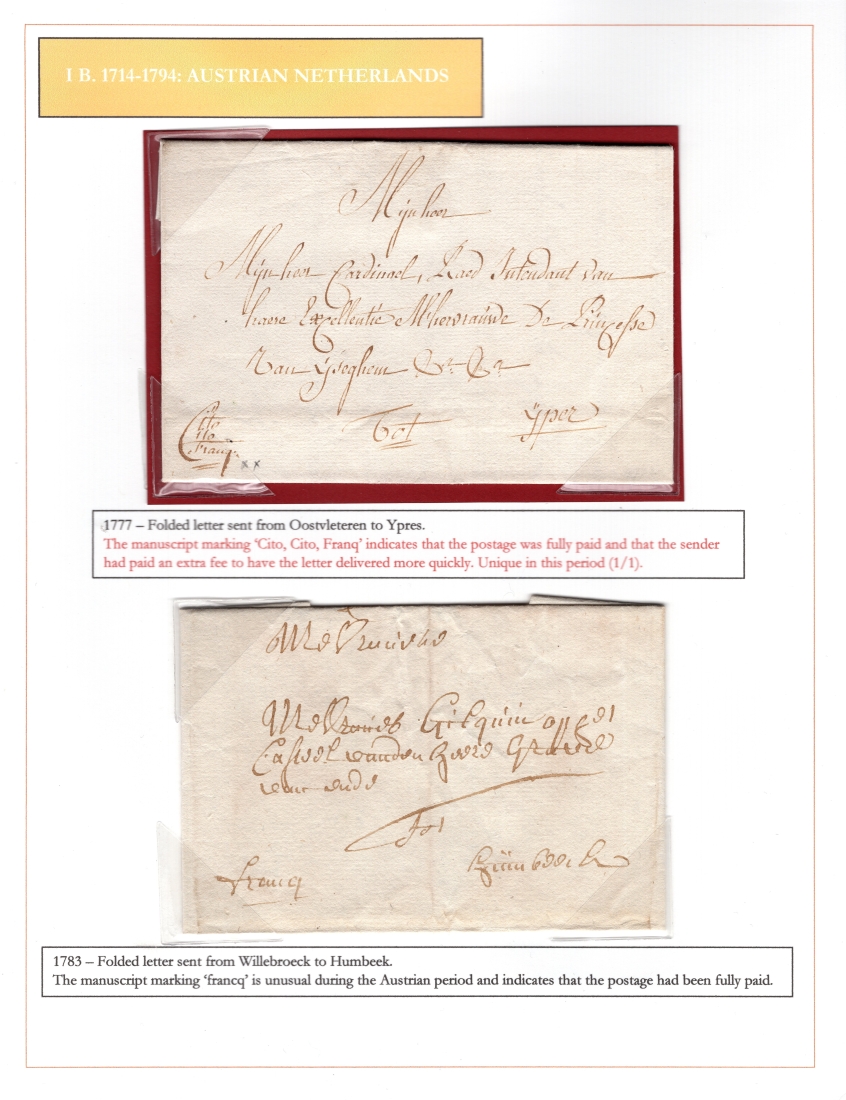 I B. 1714-1794: AUSTRIAN NETHERLANDS
Mijnheer
Mijnheer Cardinael, Raed Intendant van
haere Excellentie Mhervrauwe De Princesse
Van Yseghem &a &a
Cito
Cito
franq
x x
Tot Yper
1777 – Folded letter sent from Oostvleteren to Ypres.
The manuscript marking ‘Cito, Cito, Franq’ indicates that the postage was fully paid and that the sender
had paid an extra fee to have the letter delivered more quickly. Unique in this period (1/1).
Mevrauwe
Mevrauwe op het
Casteel vanden heere Grave
vanende
Tot
francq
Humbeeck
1783 – Folded letter sent from Willebroeck to Humbeek.
The manuscript marking ‘francq’ is unusual during the Austrian period and indicates that the postage had been fully paid.